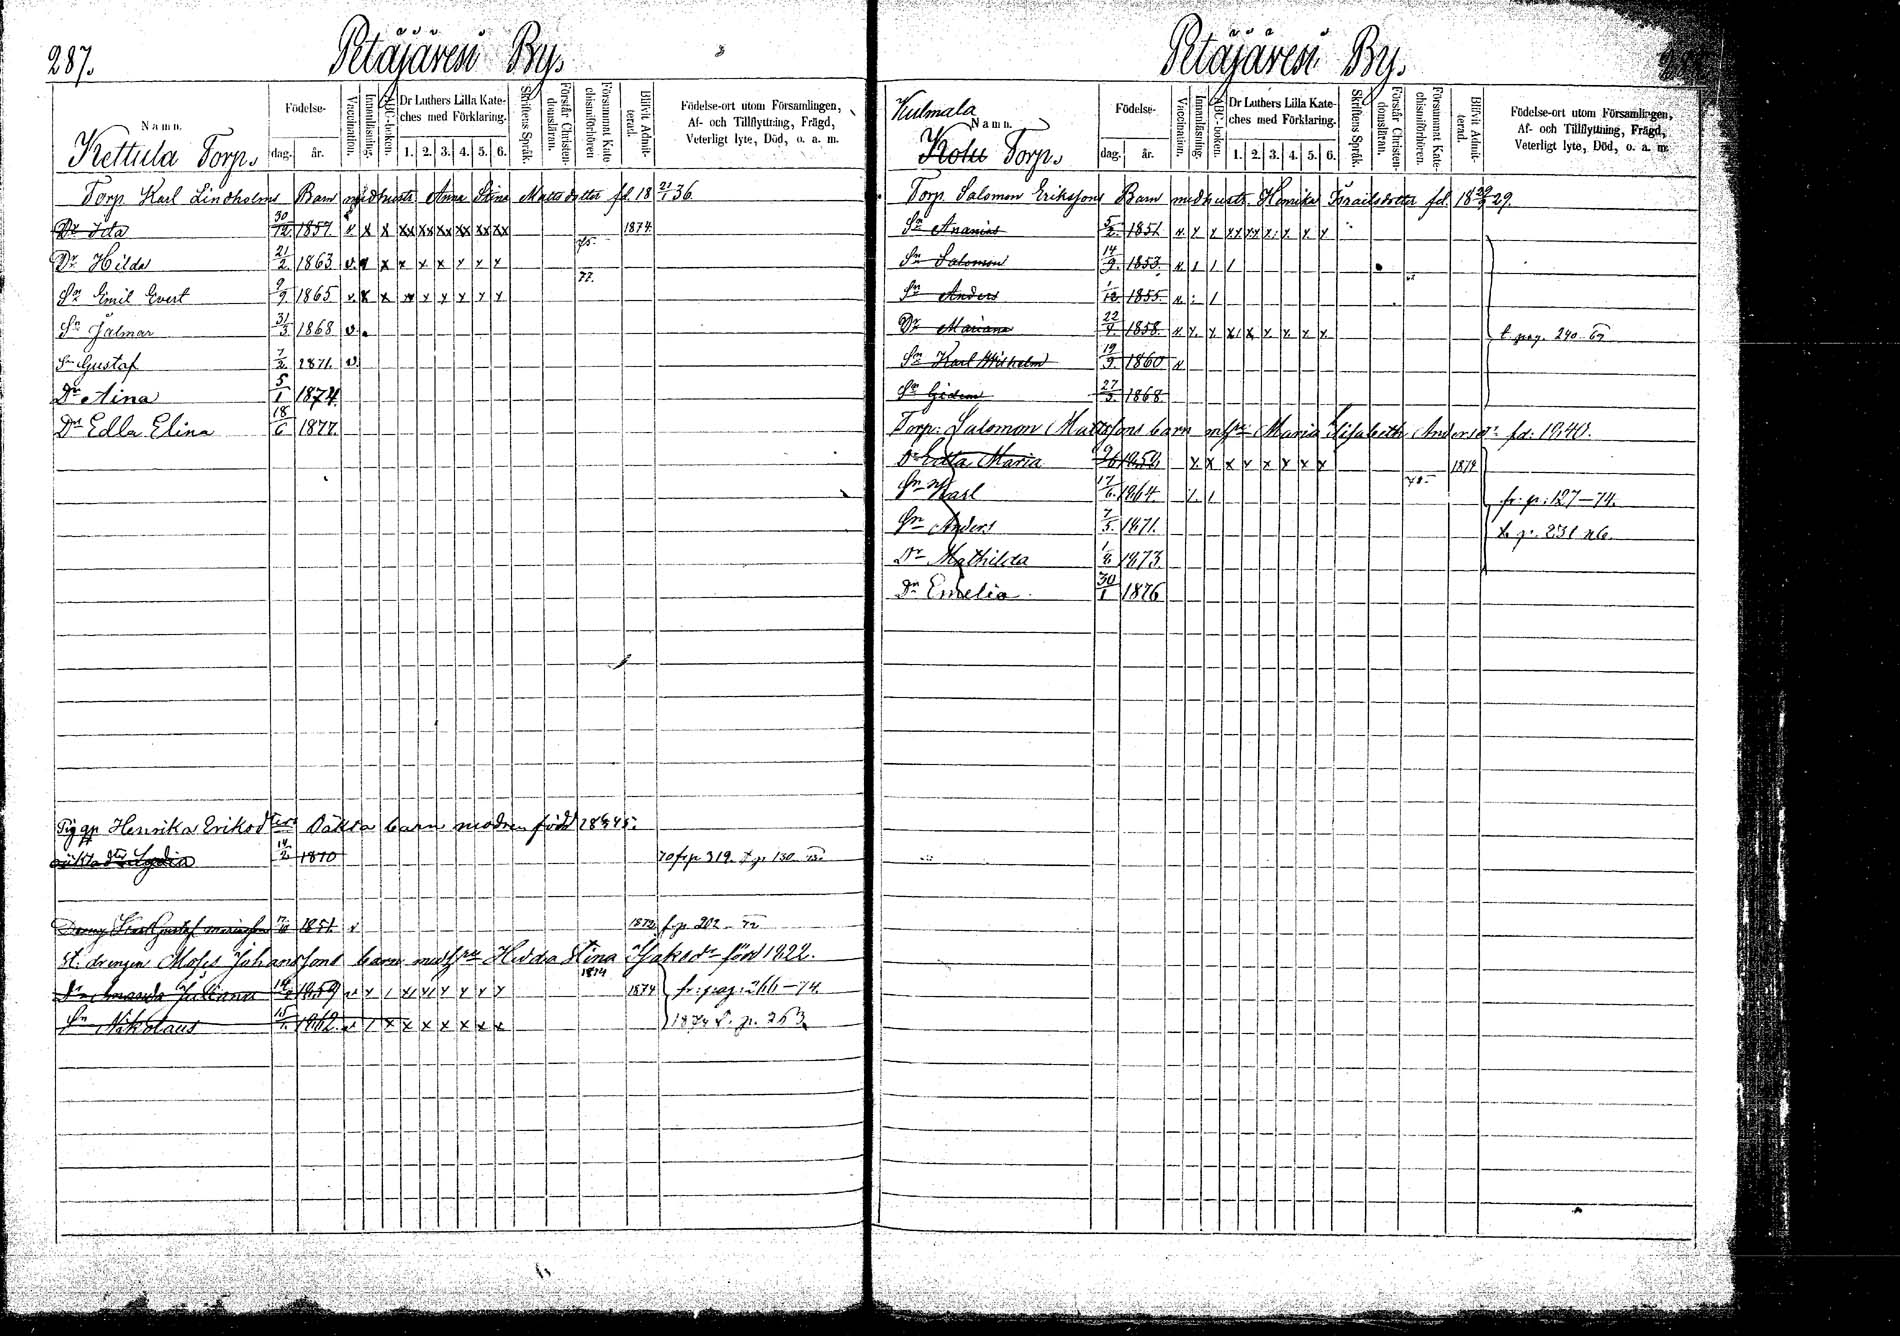 287.
Petäjävesi By.
Namn.
Kettula Torp.
Födelse-
dag. år.
Vaccination.
Innanläsning.
ABC-boken.
Dr Luthers Lilla Kate-
ches med Förklaring.
1. 2. 3. 4. 5. 6.
Skriftens Språk.
Förstår Christen-
domsläran.
Försummat Kate-
chismiförhören
Blifvit Admit-
terad.
Födelse-ort utom Församlingen,
Af- och Tillflyttning, Frägd,
Veterligt lyte, Död, o. a. m.
Torp. Karl Lindholms Barn med hustr. Anna Stina Mattsdotter fd. 18 21/1 36.
Dr Ida 30/12 1857 v x x xx xx xx xx xx xx 1874
Dr Hilda 21/2 1863 v x x x x x x x 75
Sn Emil Evert 9/9 1865 v x x x x x x x x 77.
Sn Jalmar 31/3 1868 v
Sn Gustaf 7/2 1871 v
Dr Aina 5/1 1874
Dr Edla Elina 18/6 1877.
Pig Henrika Eriksdters Oäkta barn modren född 1845.
oäkta dtr Lydia 14/2 1870 70 fr p 319.
Gustaf 1851 v 1872 f. p. 202 - 72
St. drengen Moses Johanssons barn med Hedda Stina född 1822.
1874
Juliana 1859 1874 fr: pag: 266-74.
Sn Nikolaus 15/ 1862 v / x x x x x x x 1874 p. 263
Petäjävesi By.
Kulmala
Namn.
Kotu Torp.
Födelse-
dag. år.
Vaccination.
Innanläsning.
ABC-boken.
Dr Luthers Lilla Kate-
ches med Förklaring.
1. 2. 3. 4. 5. 6.
Skriftens Språk.
Förstår Christen-
domsläran.
Försummat Kate-
chismiförhören.
Blifvit Admit-
terad.
Födelse-ort utom Församlingen,
Af- och Tillflyttning, Frägd,
Veterligt lyte, Död, o. a. m.
Torp. Salomon Erikssons Barn med hustr. Henrika Israilsdotter fd. 18 29.
Sn Ananias 5/2 1851 v x x xx xx x x x x
Sn Salomon 14/9 1853. v 1 1 1
Sn Anders 1/12 1855 v 1
Dr Mariana 22/4 1858. v x x x x x x x x t. pag. 240-69
Sn Karl Wilhelm 19/9 1860 v
Sn Gideon 27/5 1868.
Torp: Salomon Mattssons barn Maria Lisabeth Andersdr fd: 1840.
Dr Edla Maria x x x x x x x x 1874
Sn Karl 17/6 1864. 1 1 fr: p: 127-74.
Sn Anders 7/5 1871. t. p. 231
Dr Mathilda 1/8 1873
Dr Emelia 30/1 1876